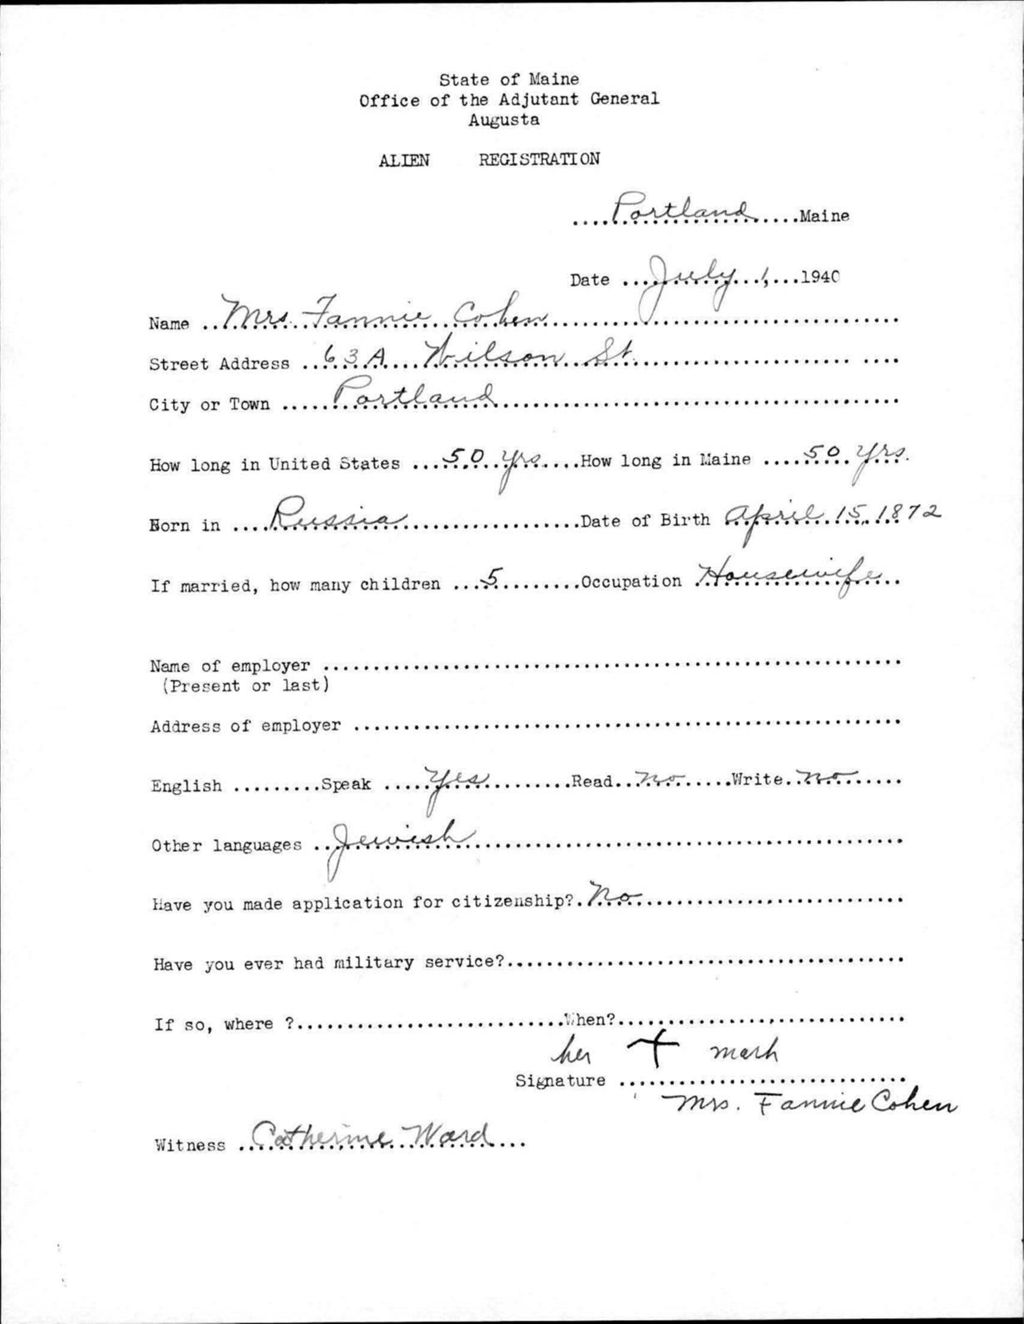 State of Maine
Office of the Adjutant General
Augusta
ALIEN REGISTRATION
....Portland.....Maine
Date ...July 1,...1940
Name ..Mrs. Fannie Cohen...............................
Street Address ..63A Wilson St......................... ....
City or Town .....Portland..........................................
How long in United States ...50 yrs....How long in Maine ....50 yrs.
Born in ....Russia.....................Date of Birth April 15, 1872
If married, how many children ...5.........Occupation Housewife..
Name of employer ..........................................................
(Present or last)
Address of employer .......................................................
English .........Speak .....Yes..........Read..no.....Write..no.....
Other languages ..Jewish...........................................
Have you made application for citizenship?.No...........................
Have you ever had military service?........................................
If so, where ?...........................When?.............................
her + mark
Signature .............................
Mrs. Fannie Cohen
Witness ..Catherine Ward...